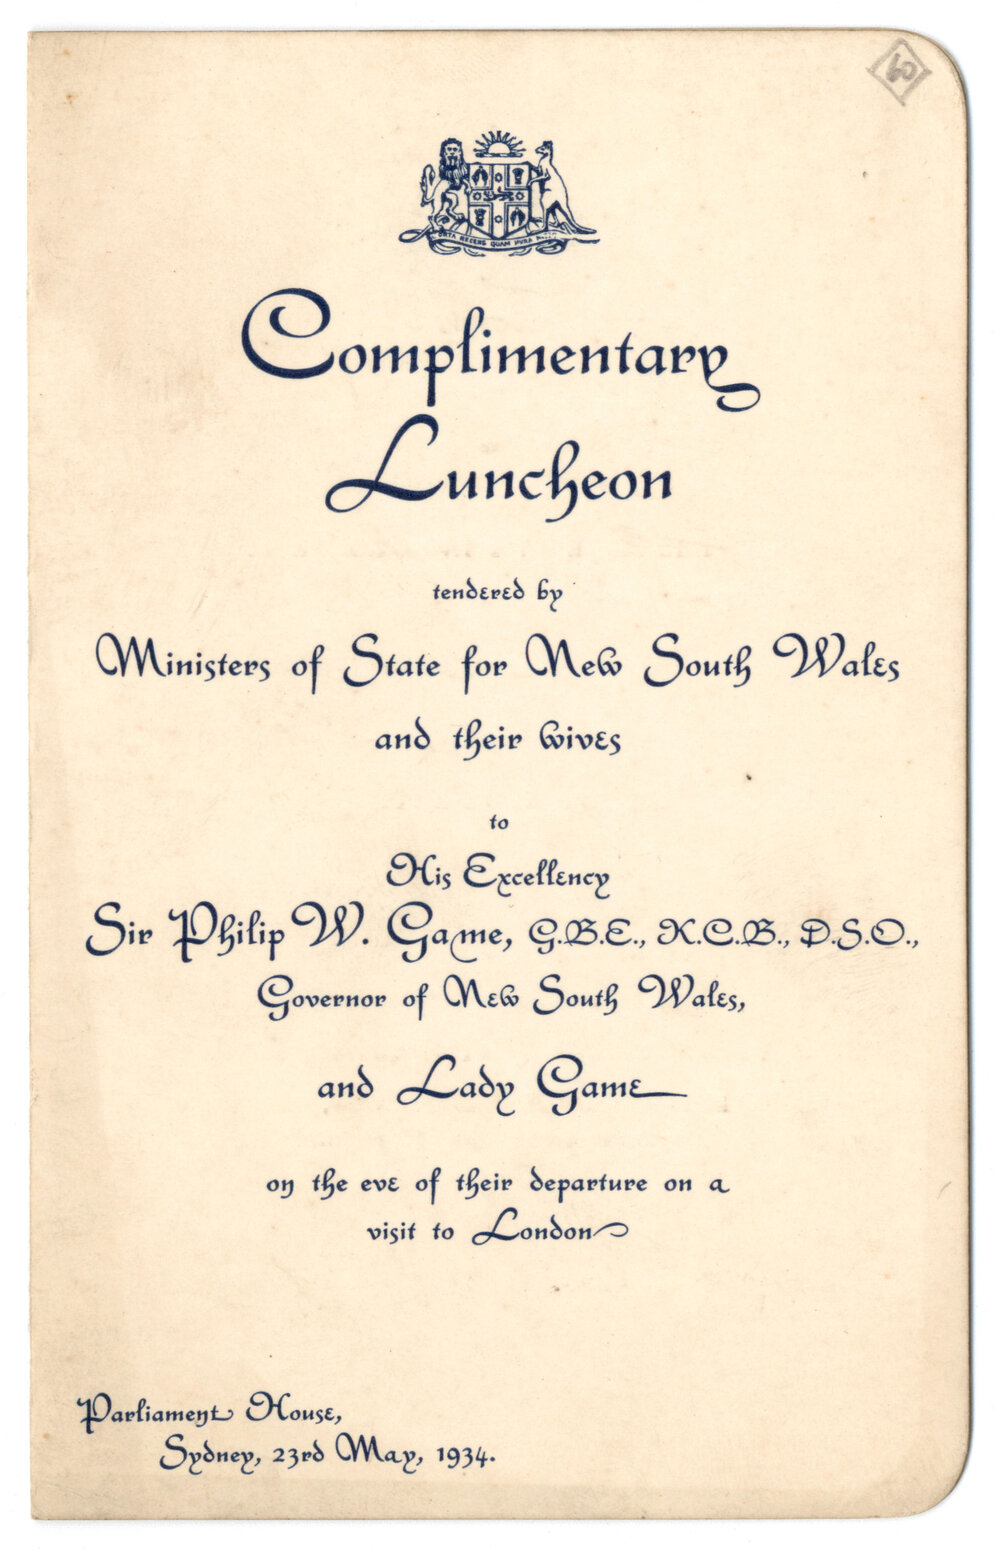 60
ORTA RECENS QUAM PURA NITES
Complimentary
Luncheon
tendered by
Ministers of State for New South Wales
and their wives
to
His Excellency
Sir Philip W. Game, G.B.E., K.C.B., D.S.O.,
Governor of New South Wales,
and Lady Game
on the eve of their departure on a
visit to London
Parliament House,
Sydney, 23rd May, 1934.